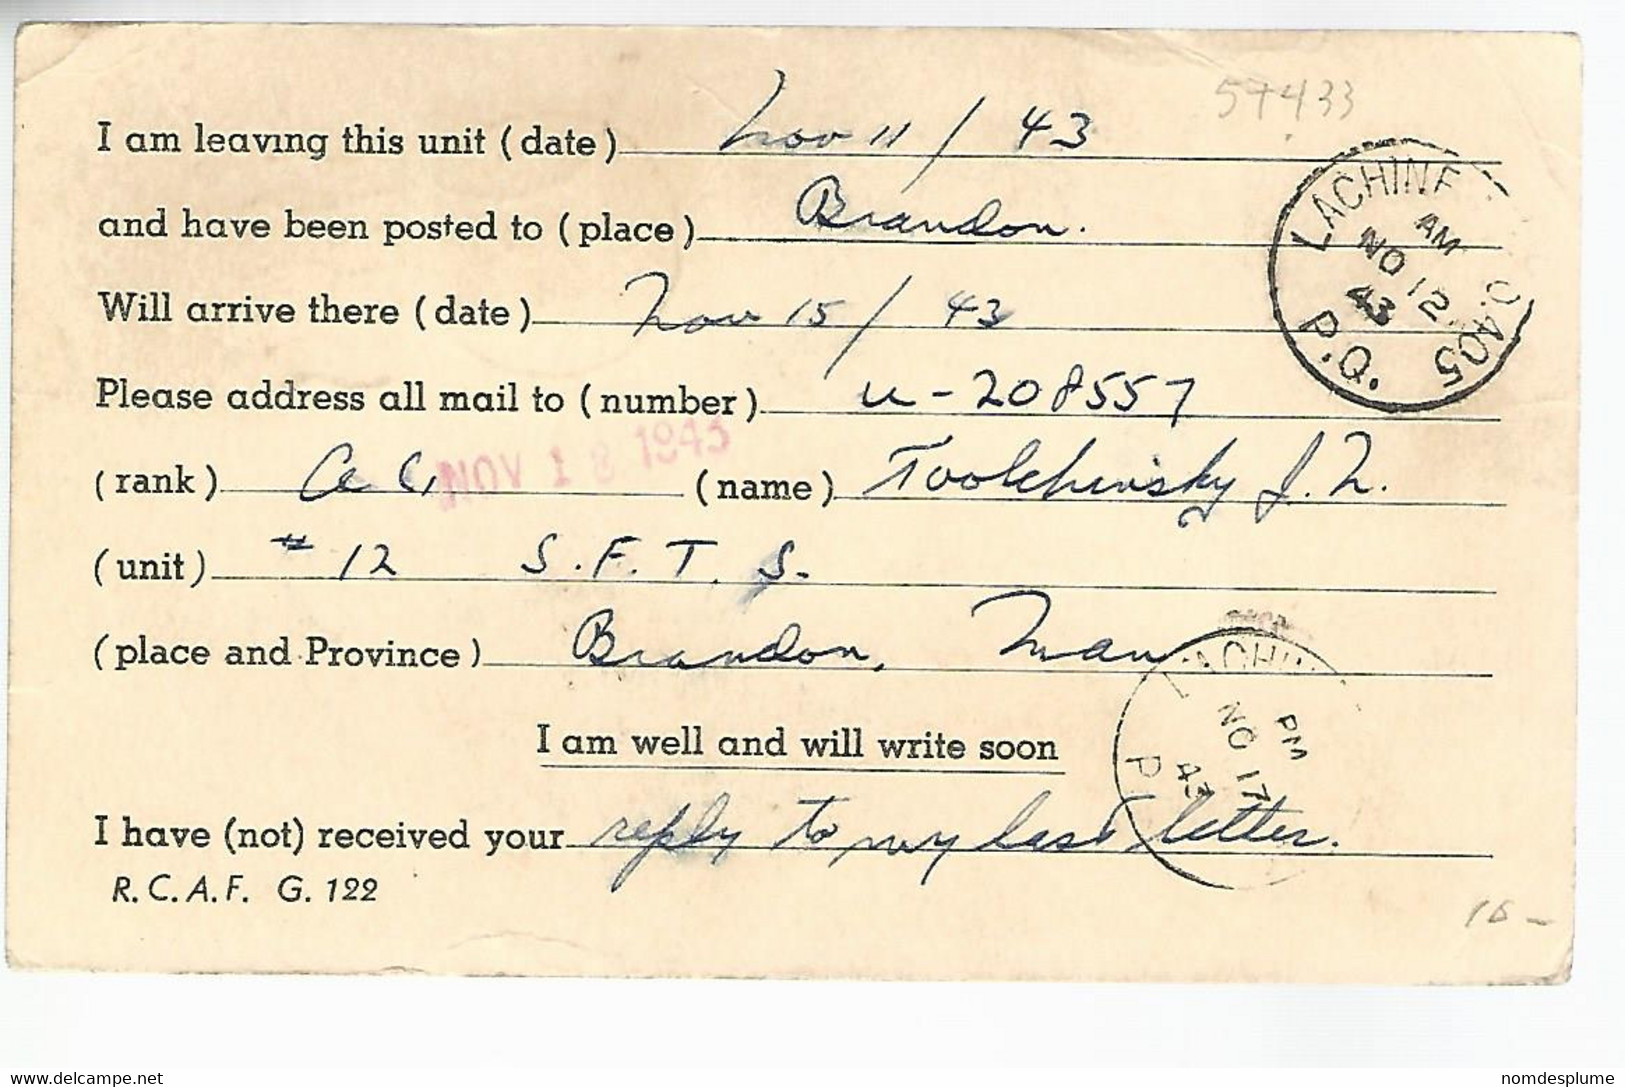 57433
I am leaving this unit (date) Nov 11 / 43
and have been posted to (place) Brandon.
Will arrive there (date) Nov 15 / 43
Please address all mail to (number) u-208557
(rank) (name) Toolchinsky J.
NOV 18 1943
(unit) # 12 S.F.T.S.
(place and Province) Brandon, Man
I am well and will write soon
I have (not) received your reply to my last letter.
R.C.A.F. G. 122
LACHINE O.405
AM
NO 12
43
P.Q.
LACHIN
PM
NO 17
43
P
delcampe.net
nomdesplume